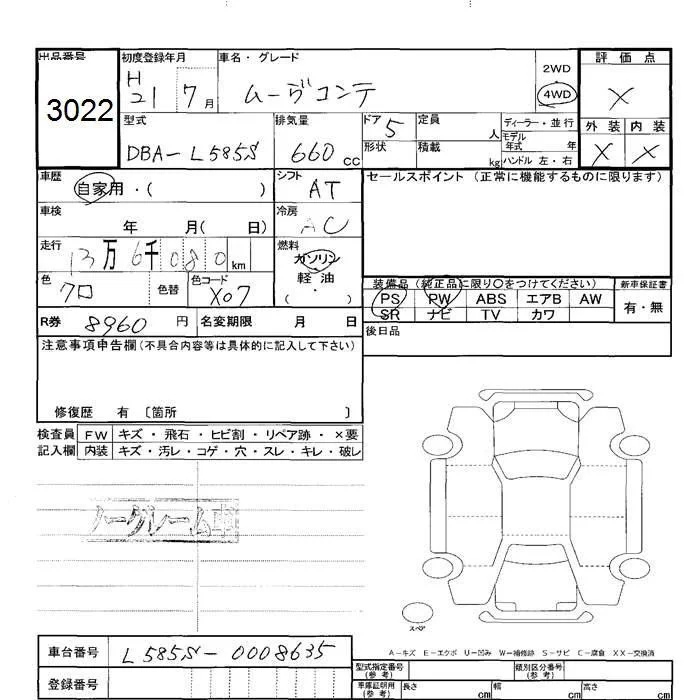 出品番号 初度登録年月 車名・グレード 評価点
3022 H21 7月 ムーヴコンテ 2WD 4WD ×
型式 排気量 ドア 5 定員 人 ディーラー・並行 外装 内装
DBA-L585S 660cc 形状 積載 kg モデル年式 年 × ×
ハンドル 左・右
車歴 自家用・( ) シフト AT セールスポイント (正常に機能するものに限ります)
車検 年 月( 日) 冷房 AC
走行 13万6千080km 燃料 ガソリン
色 クロ 色替 色コード X07 軽油 ( ・ )
装備品 (純正品に限り○をつけてください) 新車保証書
PS PW ABS エアB AW 有・無
SR ナビ TV カワ
R券 8960円 名変期限 月 日 後日品
注意事項申告欄(不具合内容等は具体的に記入して下さい)
修復歴 有 〔箇所 〕
検査員 FW キズ・飛石・ヒビ割・リペア跡・×要
記入欄 内装 キズ・汚レ・コゲ・穴・スレ・キレ・破レ
ノークレーム車
スペア
A-キズ E-エクボ U-凹み W-補修跡 S-サビ C-腐食 XX-交換済
車台番号 L585S-0008635
型式指定番号(参考) 類別区分番号(参考)
登録番号
車庫証明用(参考) 長さ cm 幅 cm 高さ cm